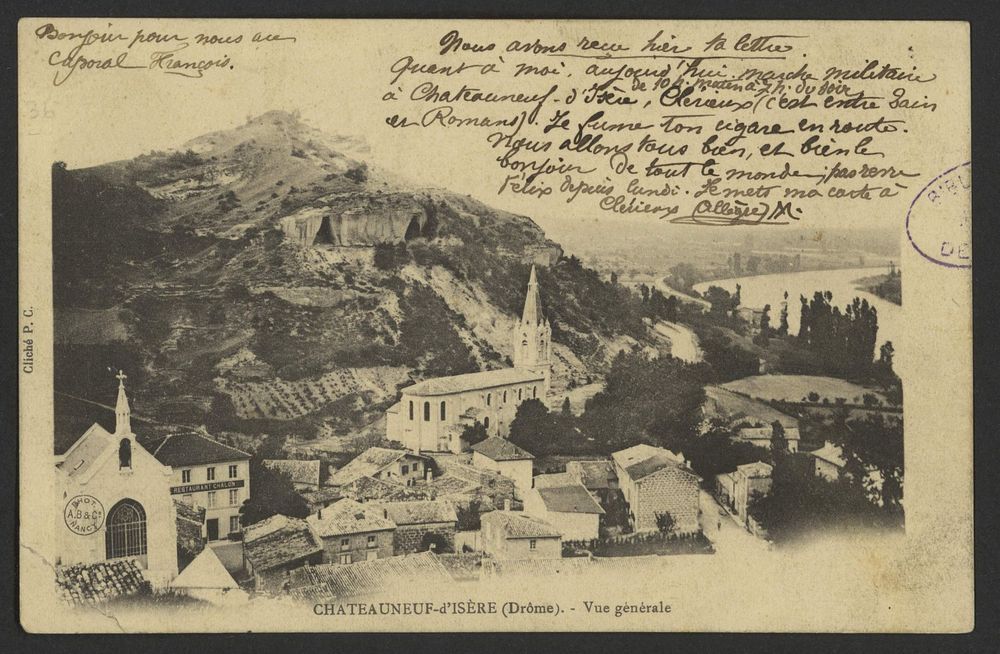 Bonjour pour nous au
Caporal François.
Nous avons reçu hier ta lettre.
Quant à moi, aujourd'hui marche militaire
de 10 h. matin à 2 h. du soir
à Chateauneuf-d'Isère, Clérieux (c'est entre Tain
et Romans). Je fume ton cigare en route.
Nous allons tous bien, et bien le
bonjour de tout le monde; pas revu
Félix depuis lundi. Je mets ma carte à
Clérieux (Allègre) M.
36
Cliché P. C.
BIBL
DE
RESTAURANT CHALON
PHOT
A.B & Cie
NANCY
CHATEAUNEUF-d'ISÈRE (Drôme). - Vue générale